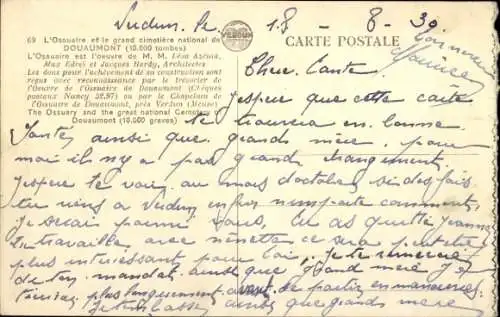 Verdun le 18-8-39
69 L'Ossuaire et le grand cimetière national de
DOUAUMONT (10.000 tombes)
L'Ossuaire est l'oeuvre de M. M. Léon Azéma,
Max Edrei et Jacques Hardy, Architectes
Les dons pour l'achèvement de sa construction sont
reçus avec reconnaissance par le trésorier de
l'Œuvre de l'Ossuaire de Douaumont (Chèques
postaux Nancy 38.97) ou par le Chapelain de
l'Ossuaire de Douaumont, près Verdun (Meuse)
The Ossuary and the great national Cemetery
Douaumont (10.000 graves)
VERDUN
CARTE POSTALE
Chère Tante
J'espère que cette carte
te trouvera en bonne
Santé ainsi que grand mère. pour
moi il n'y a pas grand changement
J'espère te voir au mois d'octobre si des fois
tu viens a Verdun enfin n'importe comment
je serai parmi vous, tu as quitté Jeanne
tu travailles avec ce sera peut être
plus interessant pour toi, je te remercie
de ton mandat ainsi que grand mère
plus longuement avant de partir en manœuvres
ainsi que grand mère